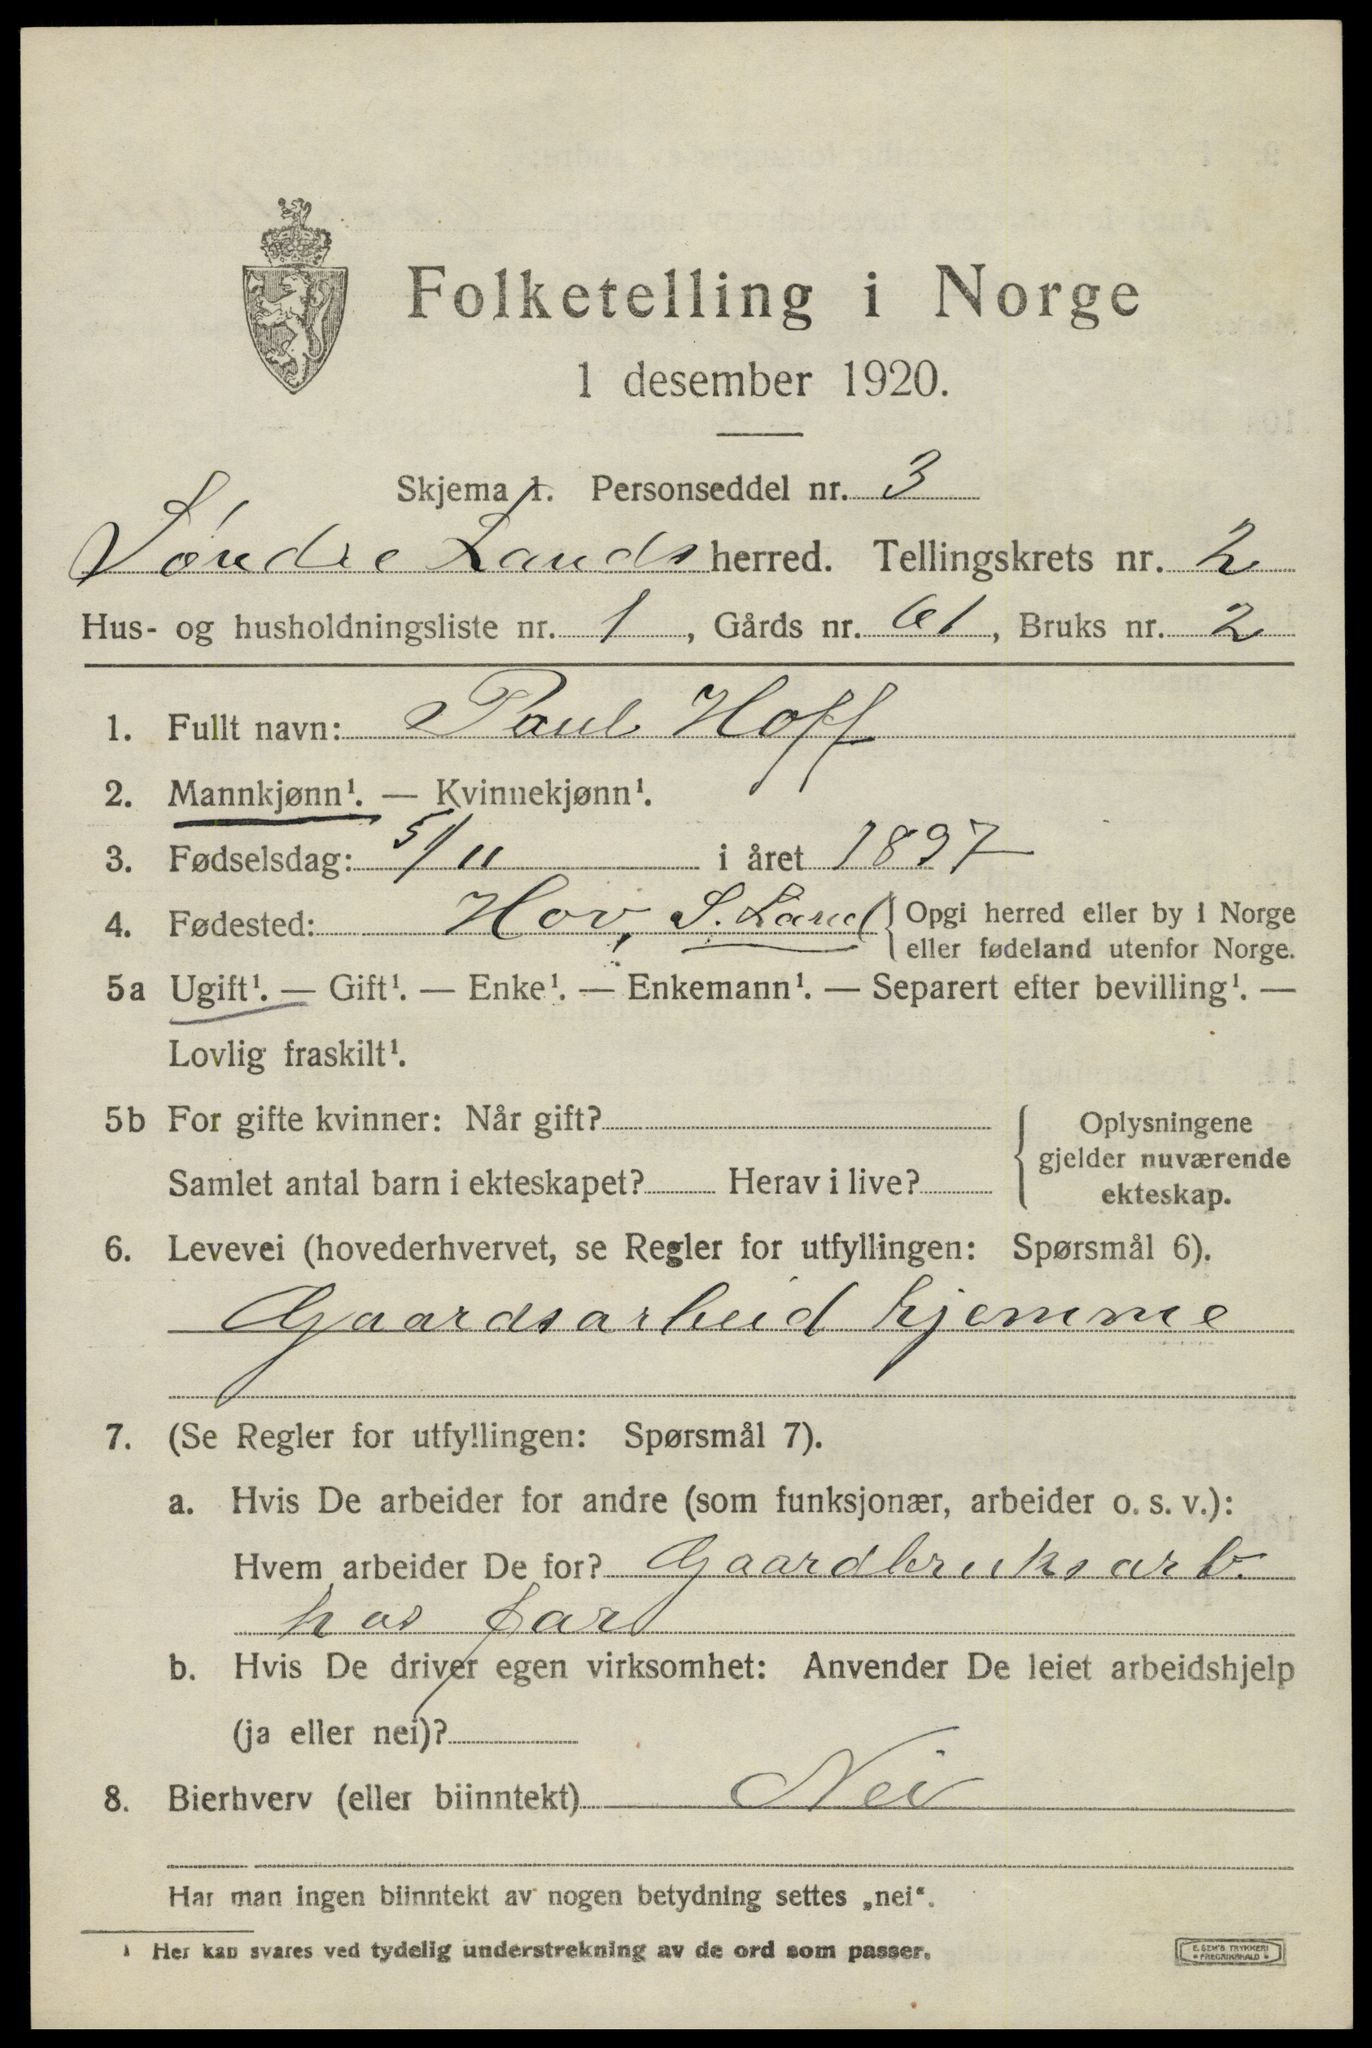 Folketelling i Norge
1 desember 1920.
Skjema 1. Personseddel nr. 3
Søndre Lands herred. Tellingskrets nr. 2
Hus- og husholdningsliste nr. 1, Gårds nr. 61, Bruks nr. 2
1. Fullt navn: Paul Hoff
2. Mannkjønn¹. — Kvinnekjønn¹.
3. Fødselsdag: 5/11 i året 1897
4. Fødested: Hov, S. Land { Opgi herred eller by i Norge
eller fødeland utenfor Norge.
5a Ugift¹. — Gift¹. — Enke¹. — Enkemann¹. — Separert efter bevilling¹. —
Lovlig fraskilt¹.
5b For gifte kvinner: Når gift?
Samlet antal barn i ekteskapet? Herav i live?
Oplysningene
gjelder nuværende
ekteskap.
6. Levevei (hovederhvervet, se Regler for utfyllingen: Spørsmål 6).
Gaardsarbeid hjemme
7. (Se Regler for utfyllingen: Spørsmål 7).
a. Hvis De arbeider for andre (som funksjonær, arbeider o. s. v.):
Hvem arbeider De for? Gaardbruksarb.
hos far
b. Hvis De driver egen virksomhet: Anvender De leiet arbeidshjelp
(ja eller nei)?
8. Bierhverv (eller biinntekt) Nei
Har man ingen biinntekt av nogen betydning settes „nei“.
¹ Her kan svares ved tydelig understrekning av de ord som passer.
E. SEM'S TRYKKERI
* FREDRIKSHALD *